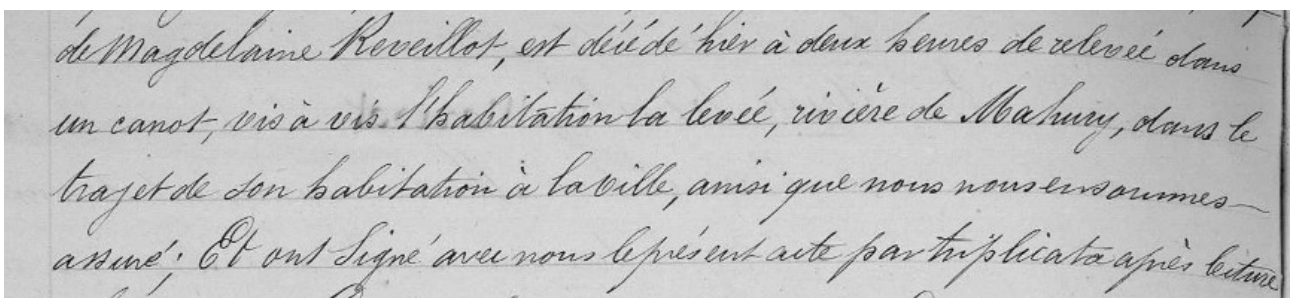 de Magdelaine Reveillot, est décédé hier à deux heures de relevée dans
un canot, vis à vis l'habitation la levée, rivière de Mahury, dans le
trajet de son habitation à la ville, ainsi que nous nous en sommes
assuré; Et ont signé avec nous le présent acte par triplicata après lecture